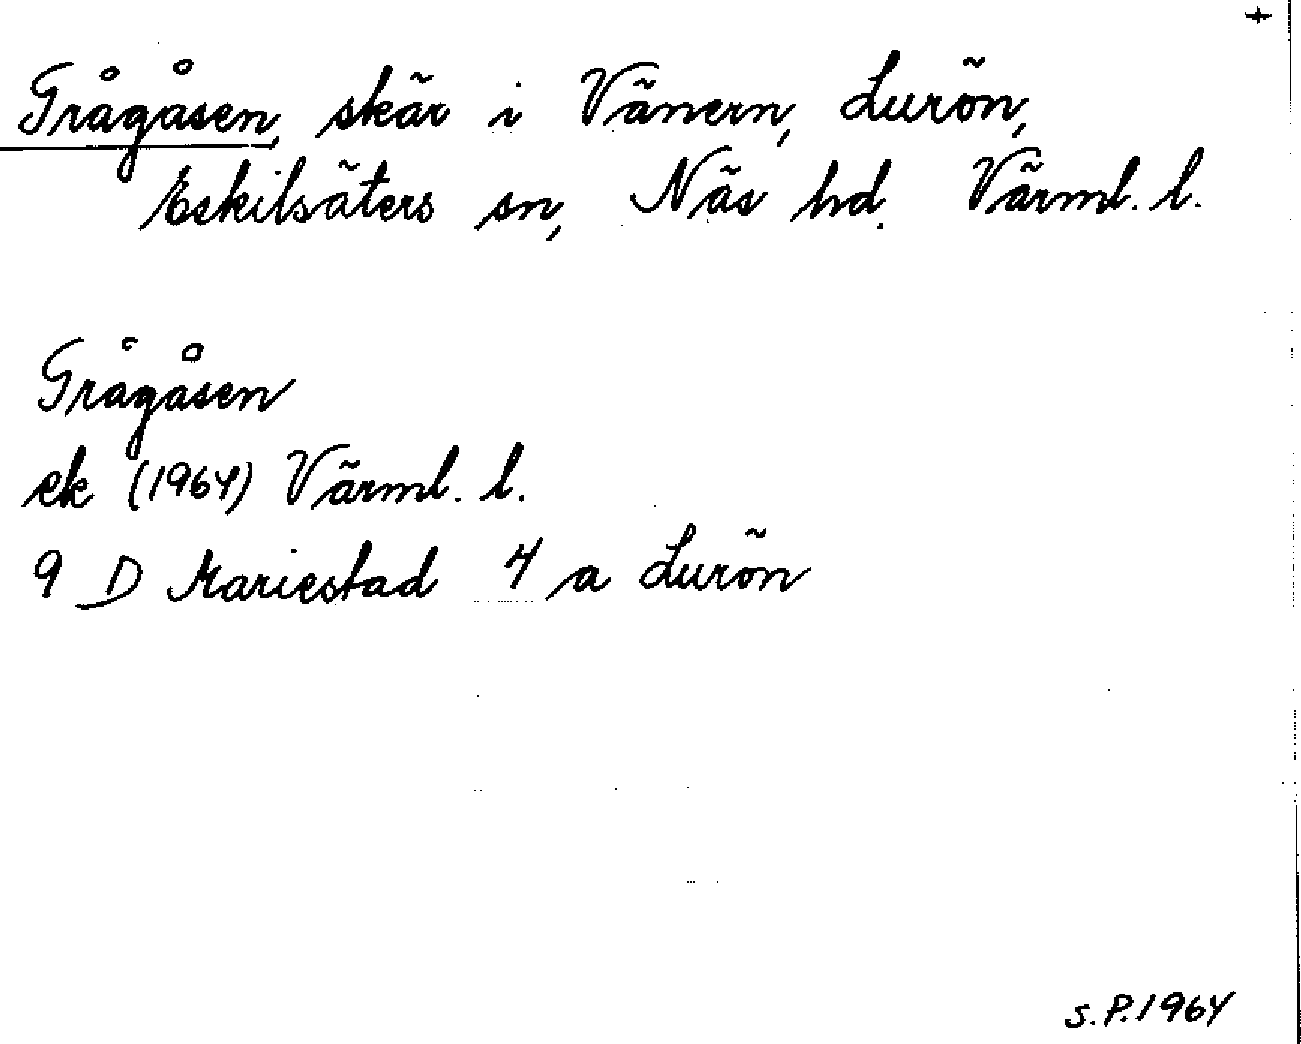 +
Grågåsen, skär i Vänern, Lurön,
Eskilsäters sn, Näs hd. Värml. l.
Grågåsen
ek (1964) Värml. l.
9 D Mariestad 4 a Lurön
S.P. 1964